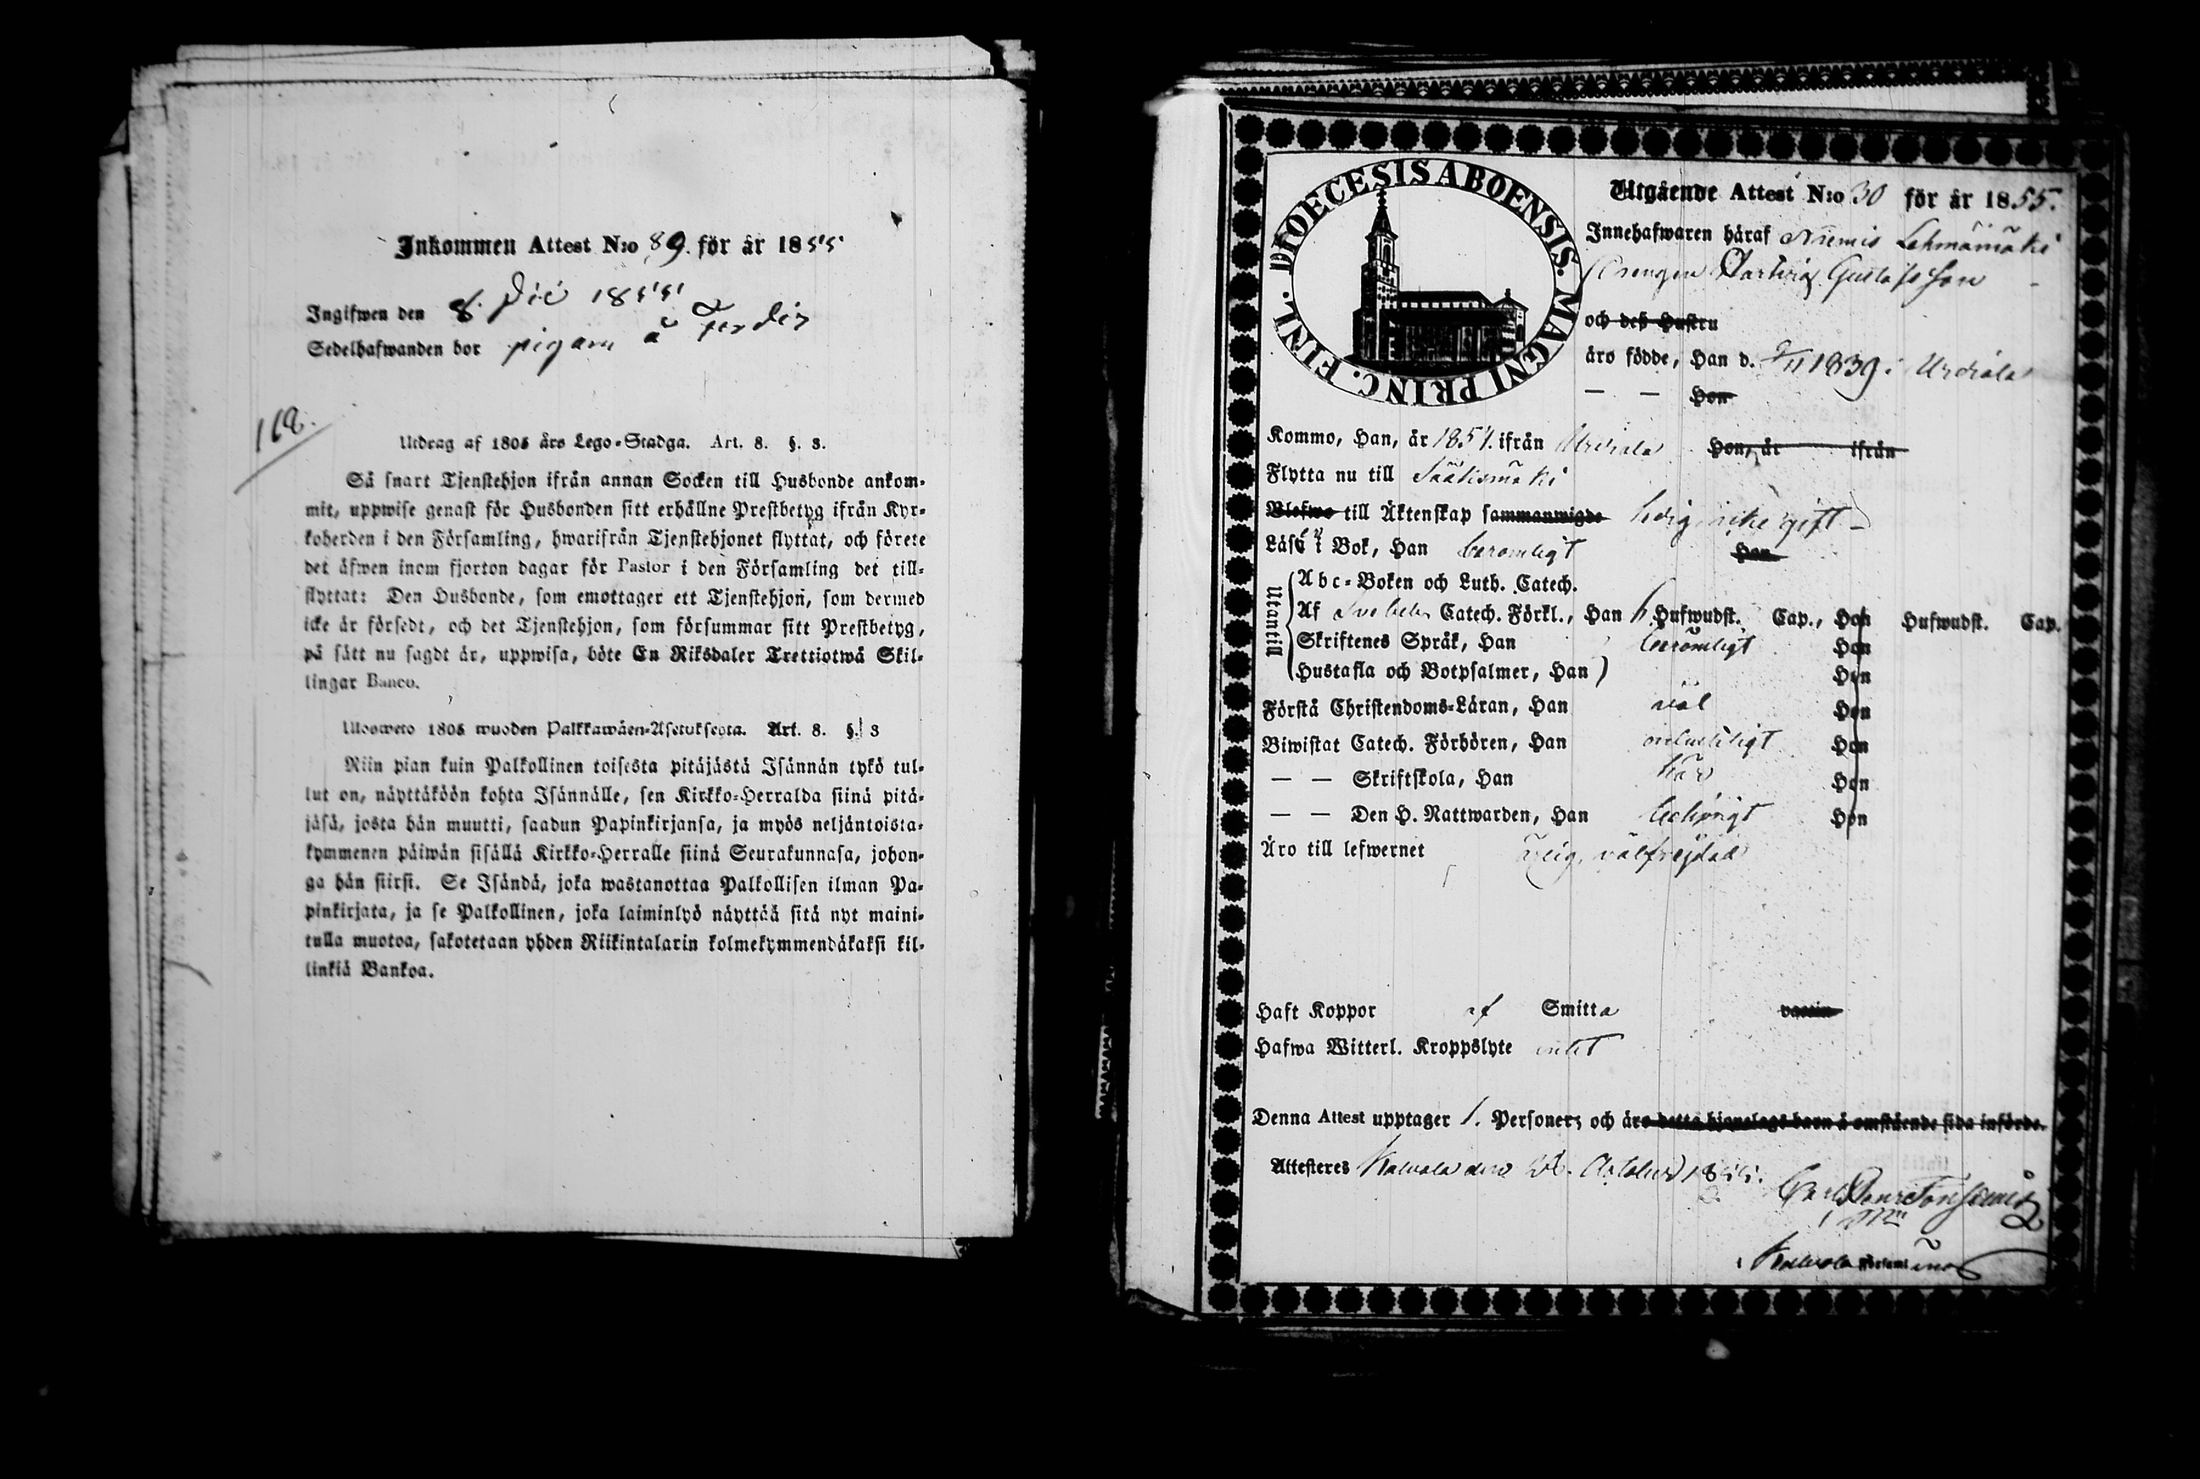 Inkommen Attest N:o 89. för år 1855
Ingifwen den 8. Dec 1855
Sedelhafwanden bor pigan å
168.
Utdrag af 1805 års Lego-Stadga. Art. 8. §. 3.
Så snart Tjenstehjon ifrån annan Socken till Husbonde ankom-
mit, uppwise genast för Husbonden sitt erhållne Prestbetyg ifrån Kyr-
koherden i den Församling, hwarifrån Tjenstehjonet flyttat, och förete
det äfwen inom fjorton dagar för Pastor i den Församling det till-
flyttat: Den Husbonde, som emottager ett Tjenstehjon, som dermed
icke är försedt, och det Tjenstehjon, som försummar sitt Prestbetyg,
på sätt nu sagdt är, uppwisa, böte En Riksdaler Trettiotwå Skil-
lingar Banco.
Ulosweto 1805 wuoden Palkkawäen-Asetuksesta. Art. 8. §. 3
Niin pian kuin Palkollinen toisesta pitäjästä Isännän tykö tul-
lut on, näyttäköön kohta Isännälle, sen Kirkko-Herralda siinä pitä-
jäsä, josta hän muutti, saadun Papinkirjansa, ja myös neljäntoista-
kymmenen päiwän sisällä Kirkko-Herralle siinä Seurakunnasa, johon-
ga hän siirsi. Se Isändä, joka wastanottaa Palkollisen ilman Pa-
pinkirjata, ja se Palkollinen, joka laiminlyö näyttää sitä nyt maini-
tulla muotoa, sakotetaan yhden Riikintalarin kolmekymmendäkaksi kil-
linkiä Bankoa.
DIOECESIS ABOENSIS. MAGNI PRINC. FINL.
Utgående Attest N:o 30 för år 1855.
Innehafwaren häraf Niemis Lehmämäki
Drengen Hartvig Gustafsson
och deß Hustru
äro födde, Han d. 9/11 1839 i Urdiala
— — Hon
Kommo, Han, år 1854. ifrån Urdiala Hon, år ifrån
Flytta nu till Sääksmäki
Blefwo till Äktenskap sammanwigde ledig, icke gift
Läsa i Bok, Han beromligt Hon
Utantill
Abc-Boken och Luth. Catech.
Af Svebelii Catech. Förkl., Han 6 Hufwudst. Cap., Hon Hufwudst. Cap.
Skriftenes Språk, Han berömligt Hon
Hustafla och Botpsalmer, Han Hon
Förstå Christendoms-Läran, Han väl Hon
Biwistat Catech. Förhören, Han ordentligt Hon
— — Skriftskola, Han här Hon
— — Den H. Nattwarden, Han behörigt Hon
Äro till lefwernet välfrejdad
Haft Koppor af Smitta vaccin
Hafwa Witterl. Kroppslyte intet
Denna Attest upptager 1. Personer, och äro detta hjonelags barn å omstående sida införde.
Attesteres Kalvola den October 1855.
Carl
Kalvola Församl